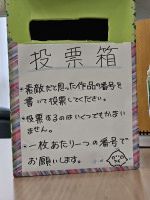 投票箱
・素敵だと思った作品の番号を
書いて投票してください。
・投票するのはいくつでもかまい
ません。
・一枚あたり一つの番号で
お願いします。